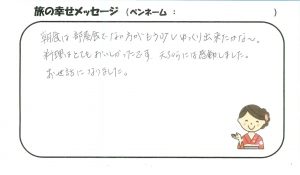 旅の幸せメッセージ (ペンネーム : )
朝食は部屋食でない方がもう少しゆっくり出来たかな〜。
料理はとてもおいしかったです 天ぷらには感動しました。
お世話になりました。